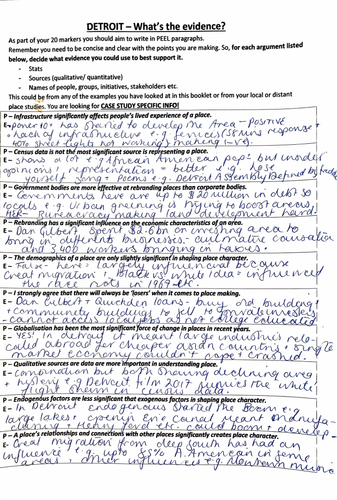 DETROIT – What's the evidence?
As part of your 20 markers you should aim to write in PEEL paragraphs.
Remember you need to be concise and clear with the points you are making. So, for each argument listed
below, decide what evidence you could use to best support it.
- Stats
- Sources (qualitative/ quantitative)
- Names of people, groups, initiatives, stakeholders etc.
This could be from any of the examples you have looked at in this booklet or from your local or distant
place studies. You are looking for CASE STUDY SPECIFIC INFO!
P – Infrastructure significantly affects people's lived experience of a place.
E – has started to develop the Area - POSITIVE
+ Lack of infrastructure e.g 58 mins response +
40% street lights not working making (-ve).
P – Census data is not the most significant source is representing a place.
E – shows a lot e.g African American pop: but insider
opinions / representation = better e.g
Poems e.g. Detroit
P – Government bodies are more effective at rebranding places than corporate bodies.
E – Governments here are up $ billion in debt so
locals e.g urban greening is trying to boost areas,
Bureaucracy making land development hard
P – Rebranding has a significant influence on the economic characteristics of an area.
E – Dan Gilbert spent $ bn on investing area to
bring in different businesses - causation
and workers bringing in taxes.
P – The demographics of a place are only slightly significant in shaping place character.
E – False - here = largely influencial because
Great migration + Black vs white idea = influenced
the race riots in 1967 etc.
P – I strongly agree that there will always be 'losers' when it comes to place making.
E – Dan Gilbert + Quickden loans - buy old building /
+ community buildings to sell to investers
- cannot access local jobs as not college educated
P – Globalisation has been the most significant force of change in places in recent years.
E – YES, in detroit it meant large industries relo-
cated abroad for cheaper asian countries + single
market economy couldn't cope + crashed.
P – Qualitative sources are more important in understanding place.
E – combination but both showing declining area
+ history e.g Detroit film 2017 the white
flight shown in census data.
P – Endogenous factors are less significant that exogenous factors in shaping place character.
E – In Detroit endogenous started the Boom e.g
large lakes + opening Erie Canal meant
+ Henry Ford etc. could boom + develop
P – A place's relationships and connections with other places significantly creates place character.
E – Great migration from deep south has had an
influence e.g. up to 85% A.American in some
areas + other influences e.g. Motown music